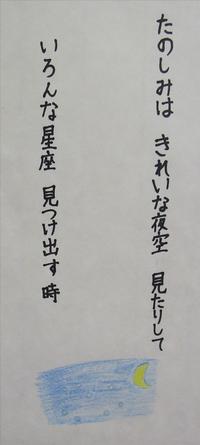 たのしみは きれいな夜空 見たりして
いろんな星座 見つけ出す時